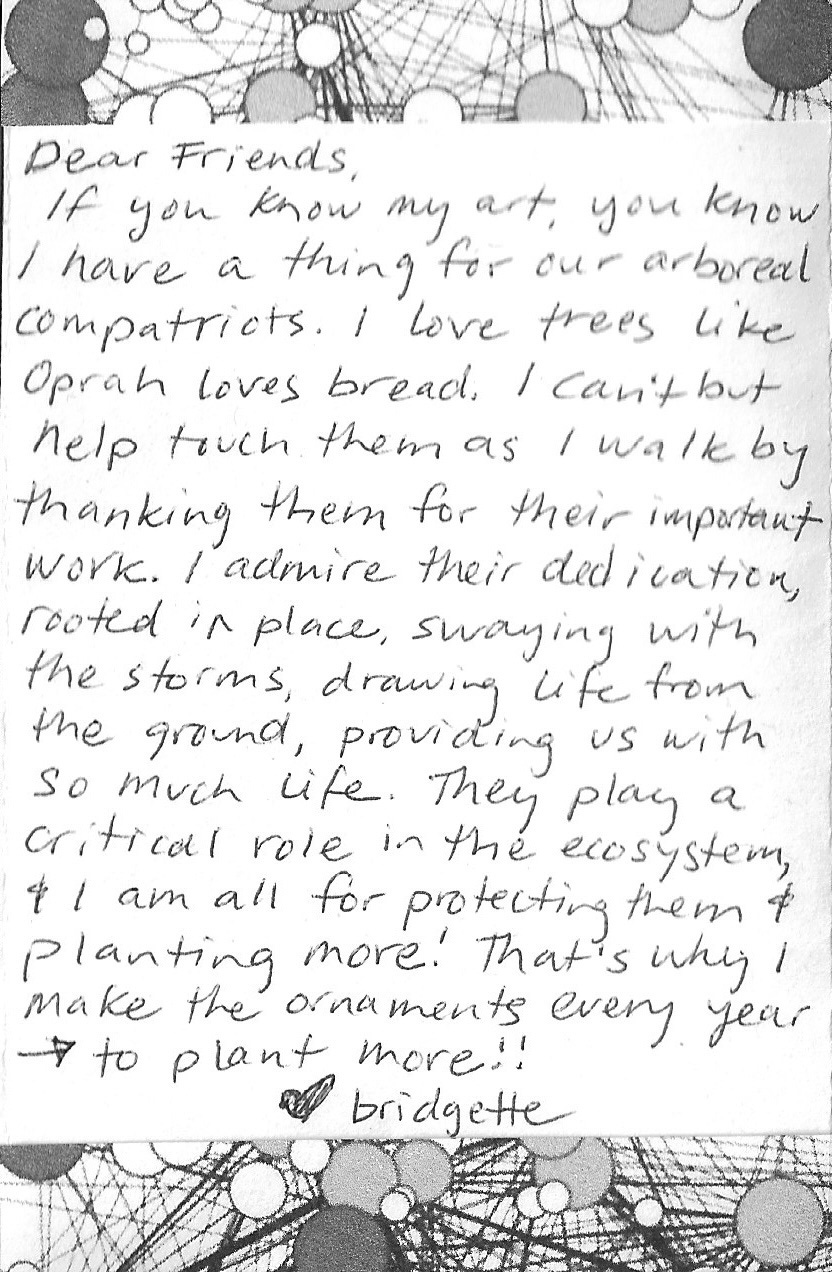 Dear Friends,
If you know my art, you know
I have a thing for our arboreal
compatriots. I love trees like
Oprah loves bread. I can't but
help touch them as I walk by
thanking them for their important
work. I admire their dedication,
rooted in place, swaying with
the storms, drawing life from
the ground, providing us with
so much life. They play a
critical role in the ecosystem,
& I am all for protecting them &
planting more! That's why I
make the ornaments every year
→ to plant more!!
♥ bridgette